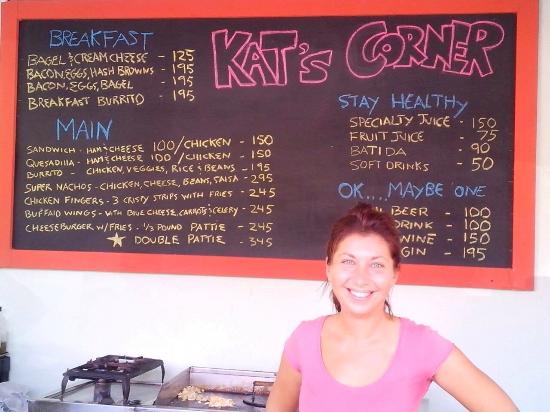 KAT'S CORNER
BREAKFAST
BAGEL & CREAM CHEESE - 125
BACON, EGGS, HASH BROWNS - 195
BACON, EGGS, BAGEL - 195
BREAKFAST BURRITO - 195
MAIN
SANDWICH - HAM & CHEESE 100/CHICKEN - 150
QUESADILLA - HAM & CHEESE 100/CHICKEN - 150
BURRITO - CHICKEN, VEGGIES, RICE & BEANS - 195
SUPER NACHOS - CHICKEN, CHEESE, BEANS, SALSA - 295
CHICKEN FINGERS - 3 CRISPY STRIPS WITH FRIES - 245
BUFFALO WINGS - WITH BLUE CHEESE, CARROTS & CELERY - 245
CHEESEBURGER W/FRIES - 1/3 POUND PATTIE - 245
DOUBLE PATTIE - 345
STAY HEALTHY
SPECIALTY JUICE - 150
FRUIT JUICE - 75
BATIDA - 90
SOFT DRINKS - 50
OK....MAYBE ONE
BEER - 100
DRINK - 100
WINE - 150
GIN - 195